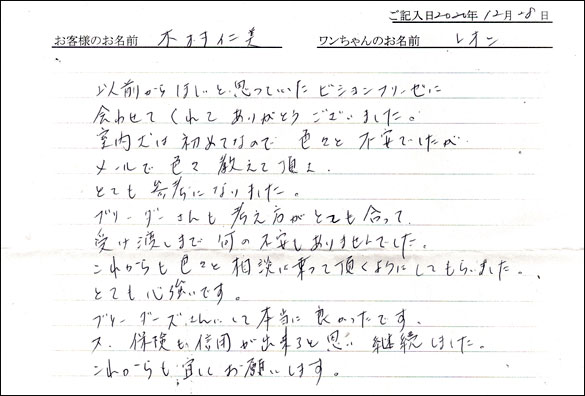 ご記入日2020年12月8日
お客様のお名前 木村仁美 ワンちゃんのお名前 レオン
以前からほしいと思っていたビションフリーゼに
会わせてくれてありがとうございました。
室内犬は初めてなので色々と不安でしたが
メールで色々教えて頂え、
とても参考になりました。
ブリーダーさんも考え方がとても合って、
受け渡しまで何の不安もありませんでした。
これからも色々と相談に乗って頂くようにしてもらいました。
とても心強いです。
ブリーダーズさんにして本当に良かったです。
又、保険も信用が出来ると思い継続しました。
これからも宜しくお願いします。